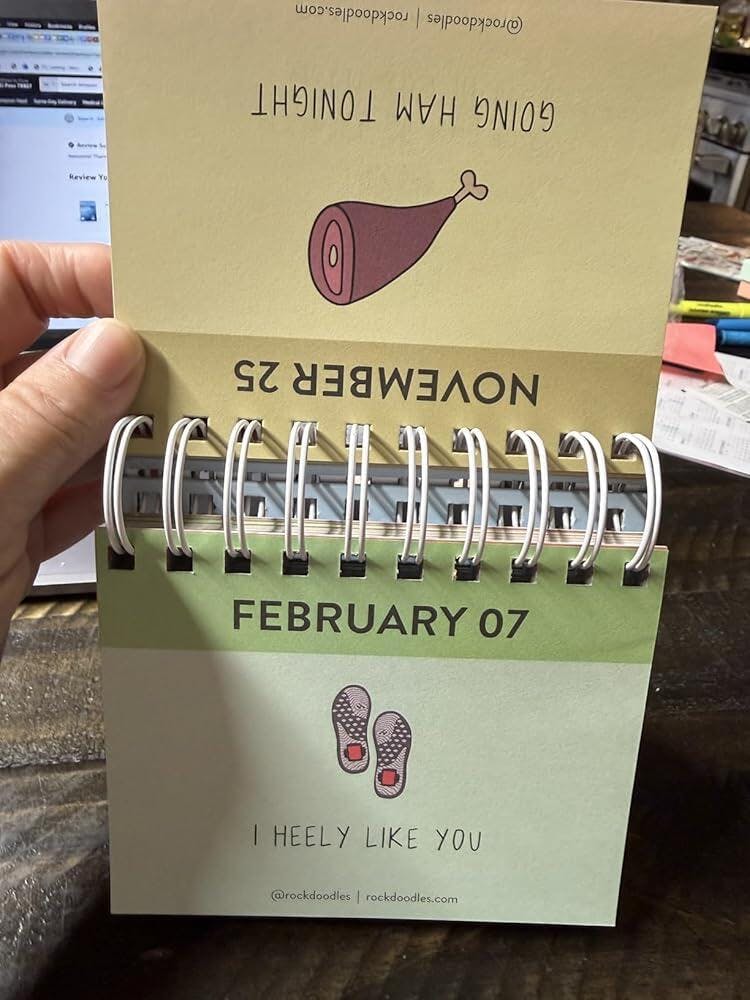 @rockdoodles | rockdoodles.com
GOING HAM TONIGHT
NOVEMBER 25
FEBRUARY 07
I HEELY LIKE YOU
@rockdoodles | rockdoodles.com
Review Yo